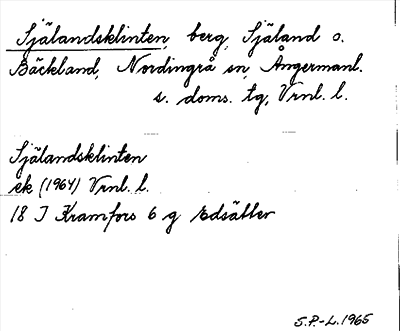 Själandsklinten, berg, Själand o.
Bäckland, Nordingrå sn, Ångermanl.
s. doms. tg, Vrnl. l.
Själandsklinten
ek (1964) Vrnl. l.
18 I Kramfors 6 g Edsätter
S.P.-L. 1965